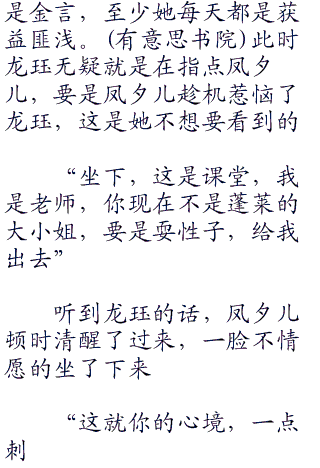 是金言，至少她每天都是获
益匪浅。(有意思书院)此时
龙珏无疑就是在指点凤夕
儿，要是凤夕儿趁机惹恼了
龙珏，这是她不想要看到的
“坐下，这是课堂，我
是老师，你现在不是蓬莱的
大小姐，要是耍性子，给我
出去”
听到龙珏的话，凤夕儿
顿时清醒了过来，一脸不情
愿的坐了下来
“这就你的心境，一点
刺